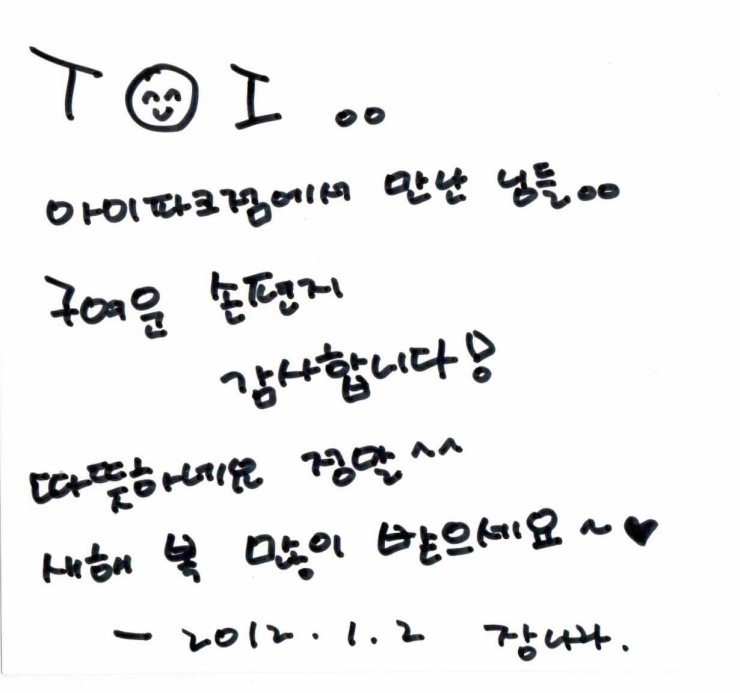 TOI..
아이파크점에서 만난 님들..
구여운 손편지
감사합니다!
따뜻하네요 정말^^
새해 복 많이 받으세요~♥
- 2012.1.2 장나라.